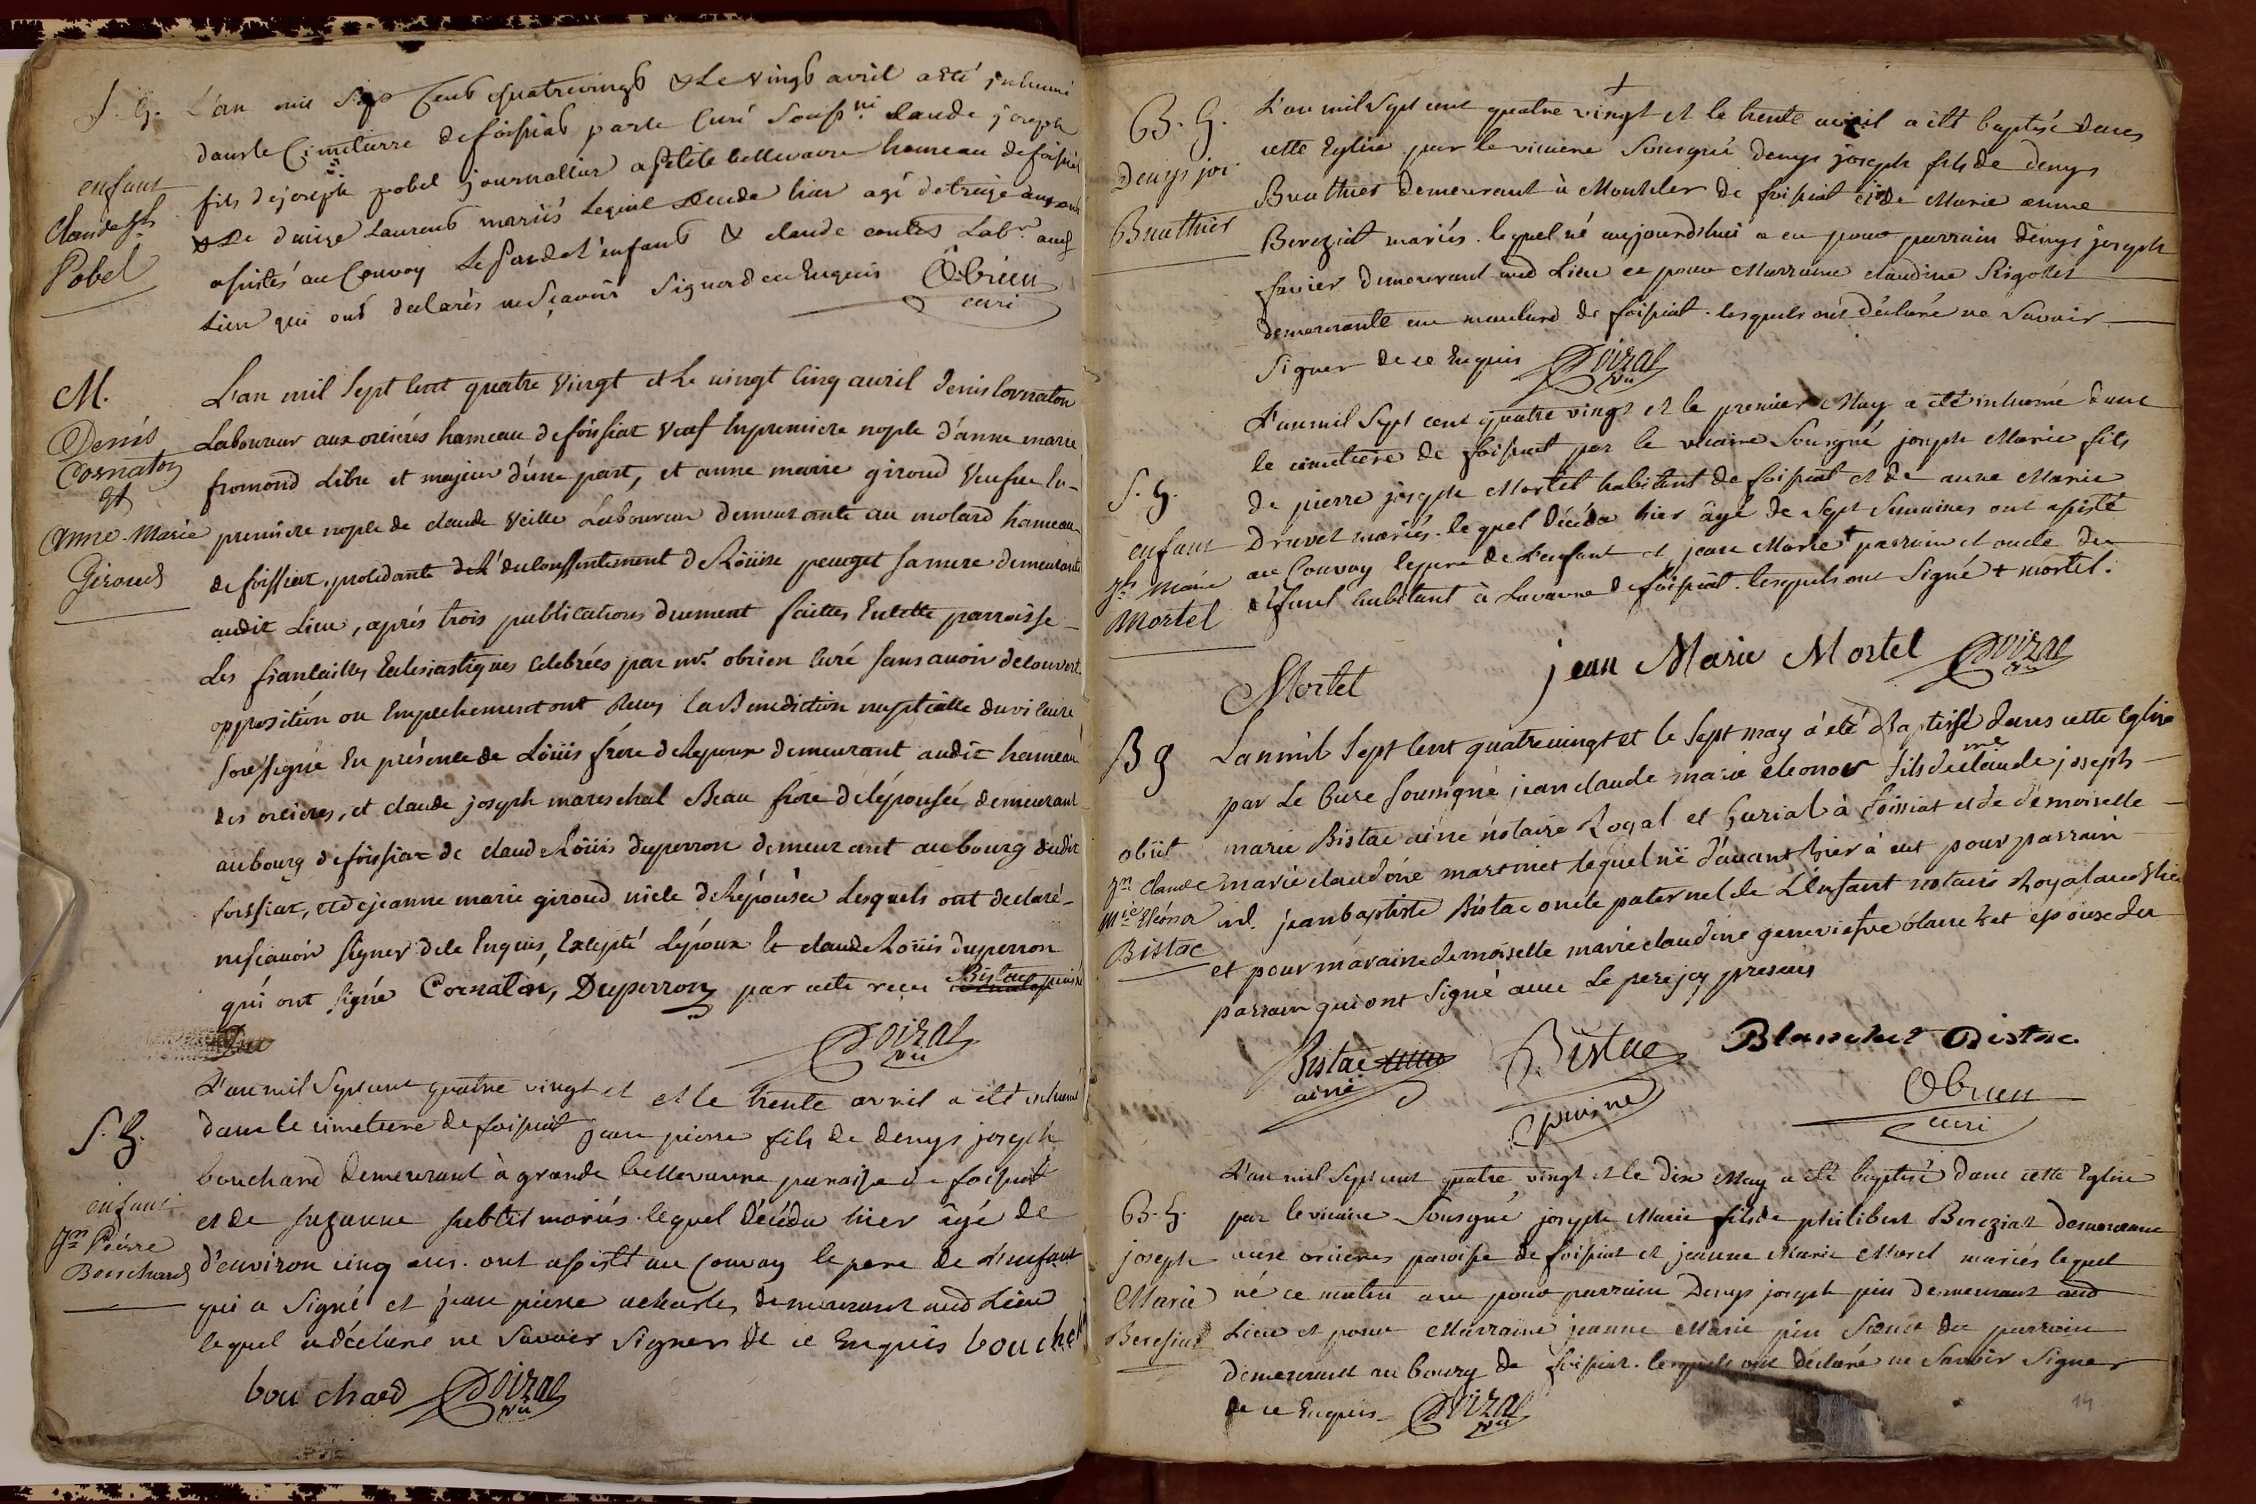 S. G.
enfant
Claude Jh
Pobel
L'an mil Sept Cent quatrevingt & Le vingt avril a été inhumé
dans le Cimetierre de foissiat par le Curé Sousné. claude joseph
fils de joseph pobel journallier a petite bellevavre hameau de foissiat
& de denise Laurent mariés lequel décédé hier agé de treize
assistés au Convoy Le pere de l'enfant & claude contet Labr. aud
Lieu qui ont declarés ne Sçavoir Signer de ce Enquis Obrien
curé
M.
Denis
Cornaton
et
Anne-Marie
Giroud
L'an mil Sept Cent quatre Vingt et Le vingt Cinq avril denis Cornaton
Laboureur aux oricres hameau de foissiat Veuf En premiere nople d'anne marie
fromond Libre et majeur d'une part, et anne marie giroud Veufve En
premiere nople de claude Veille Laboureur demeurante au molard hameau
de foissiat, procedante de l' du Consentement de Löüise peuget sa mere demeurante
audit Lieu, aprés trois publications duement faittes En cette parroisse
Les fiançailles Eclesiastiques Celebrées par mr. obrien Curé sans avoir decouvert
opposition ou Empechement ont Reçu la Benediction nuptialle du vicaire
soussigné En présence de Löüis frére de Lepoux demeurant audit hameau
des oricres, et claude joseph mareschal Beau frére de L'épousée, demeurant
au bourg de foissiat de claude Löüis duperron demeurant au bourg dudit
foissiat, et de jeanne marie giroud niece de L'épousée Lesquels ont declaré
ne sçavoir signer de ce Enquis, Excepté L'époux Et claude Löüis duperron
qui ont signé Cornaton, Duperron par acte reçu Bistac puiné
Doizal
vic
S. G.
enfant
Jn Piérre
Bouchard
L'an mil Sept cent quatre vingt et et le trente avril a été inhumé
dans le cimetiere de foissiat jean pierre fils de denys joseph
bouchard demeurant à grande bellevavre paroisse de foissiat
et de suzanne subtil mariés. lequel décéda hier âgé de
d'environ cinq ans. ont assisté au Convoy le pere de L'enfant
qui a Signé et jean pierre demeurant aud Lieu
lequel a déclaré ne Savoir Signer de ce Enquis bouchd
bou chard Doizal
vic
B. G.
Denys joi
Buathier
L'an mil Sept cent quatre vingt et le trente avril a été baptisé dans
cette Eglise par le vicaire Sousigné denys joseph fils de denys
Buathier demeurant à Montcler de foissiat et de Marie anne
Bereziat mariés. lequel né aujourdhui a eu pour parrain denys joseph
favier demeurant aud Lieu et pour Marraine claudine Rigollet
demeurante au de foissiat. lesquels ont déclaré ne Savoir
Signer de ce Enquis Doizal
vic
S. G.
enfant
Jh Marie
Mortel
L'an mil Sept cent quatre vingt et le premier May a été inhumé dans
le cimetiere de foissiat par le vicaire Sousigné joseph Marie fils
de pierre joseph Mortel habitant de foissiat et de anne Marie
Druvet mariés. lequel décéda hier âgé de Sept Semaines ont assisté
au Convoy le pere de L'enfant et jean Marie + parrain et oncle de
L'Enfant habitant à Lavavre de foissiat. lesquels ont Signé + mortel.
Mortel jean Marie Mortel Doizal
vic
B g
obiit
Jn. Claude
Mie Eléonor
Bistac
Lan mil Sept Cent quatrevingt et le Sept may à été Baptisé dans cette Eglise
par Le Curé soussigné jean claude marie eleonor fils de me claude joseph
marie Bistac ainé notaire Royal et Curial à foissiat et de demoiselle
marie claudine martinet lequel né d'avant hier à eut pour parrain
md. jean baptiste Bistac oncle paternel de L'Enfant notaire Royal aud Lieu
et pour maraine demoiselle marie claudine genevieve blanchet épouse du
parrain qui ont Signé avec Le pere icy present
Bistac
ainé
Bistac
puiné
Blanchet Bistac
Obrien
curé
B. G.
joseph
Marie
Beresiat
L'an mil Sept cent quatre vingt et le dix May a été baptisé dans cette Eglise
par le vicaire Sousigné joseph Marie fils de philibert Bereziat demeurant
aux oricres paroisse de foissiat et jeanne Marie Morel mariés lequel
né ce matin a eu pour parrain Denys joseph pin demeurant aud
Lieu et pour Marraine jeanne Marie pin Soeur du parrain
demeurant au bourg de foissiat. lesquels ont déclaré ne Savoir Signer
de ce Enquis Doizal
vic
14